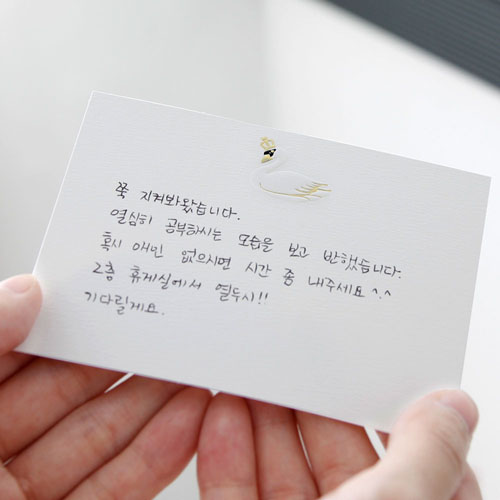 쭉 지켜봐왔습니다.
열심히 공부하시는 모습을 보고 반했습니다.
혹시 애인 없으시면 시간 좀 내주세요 ^.^
2층 휴게실에서 열두시!!
기다릴게요.